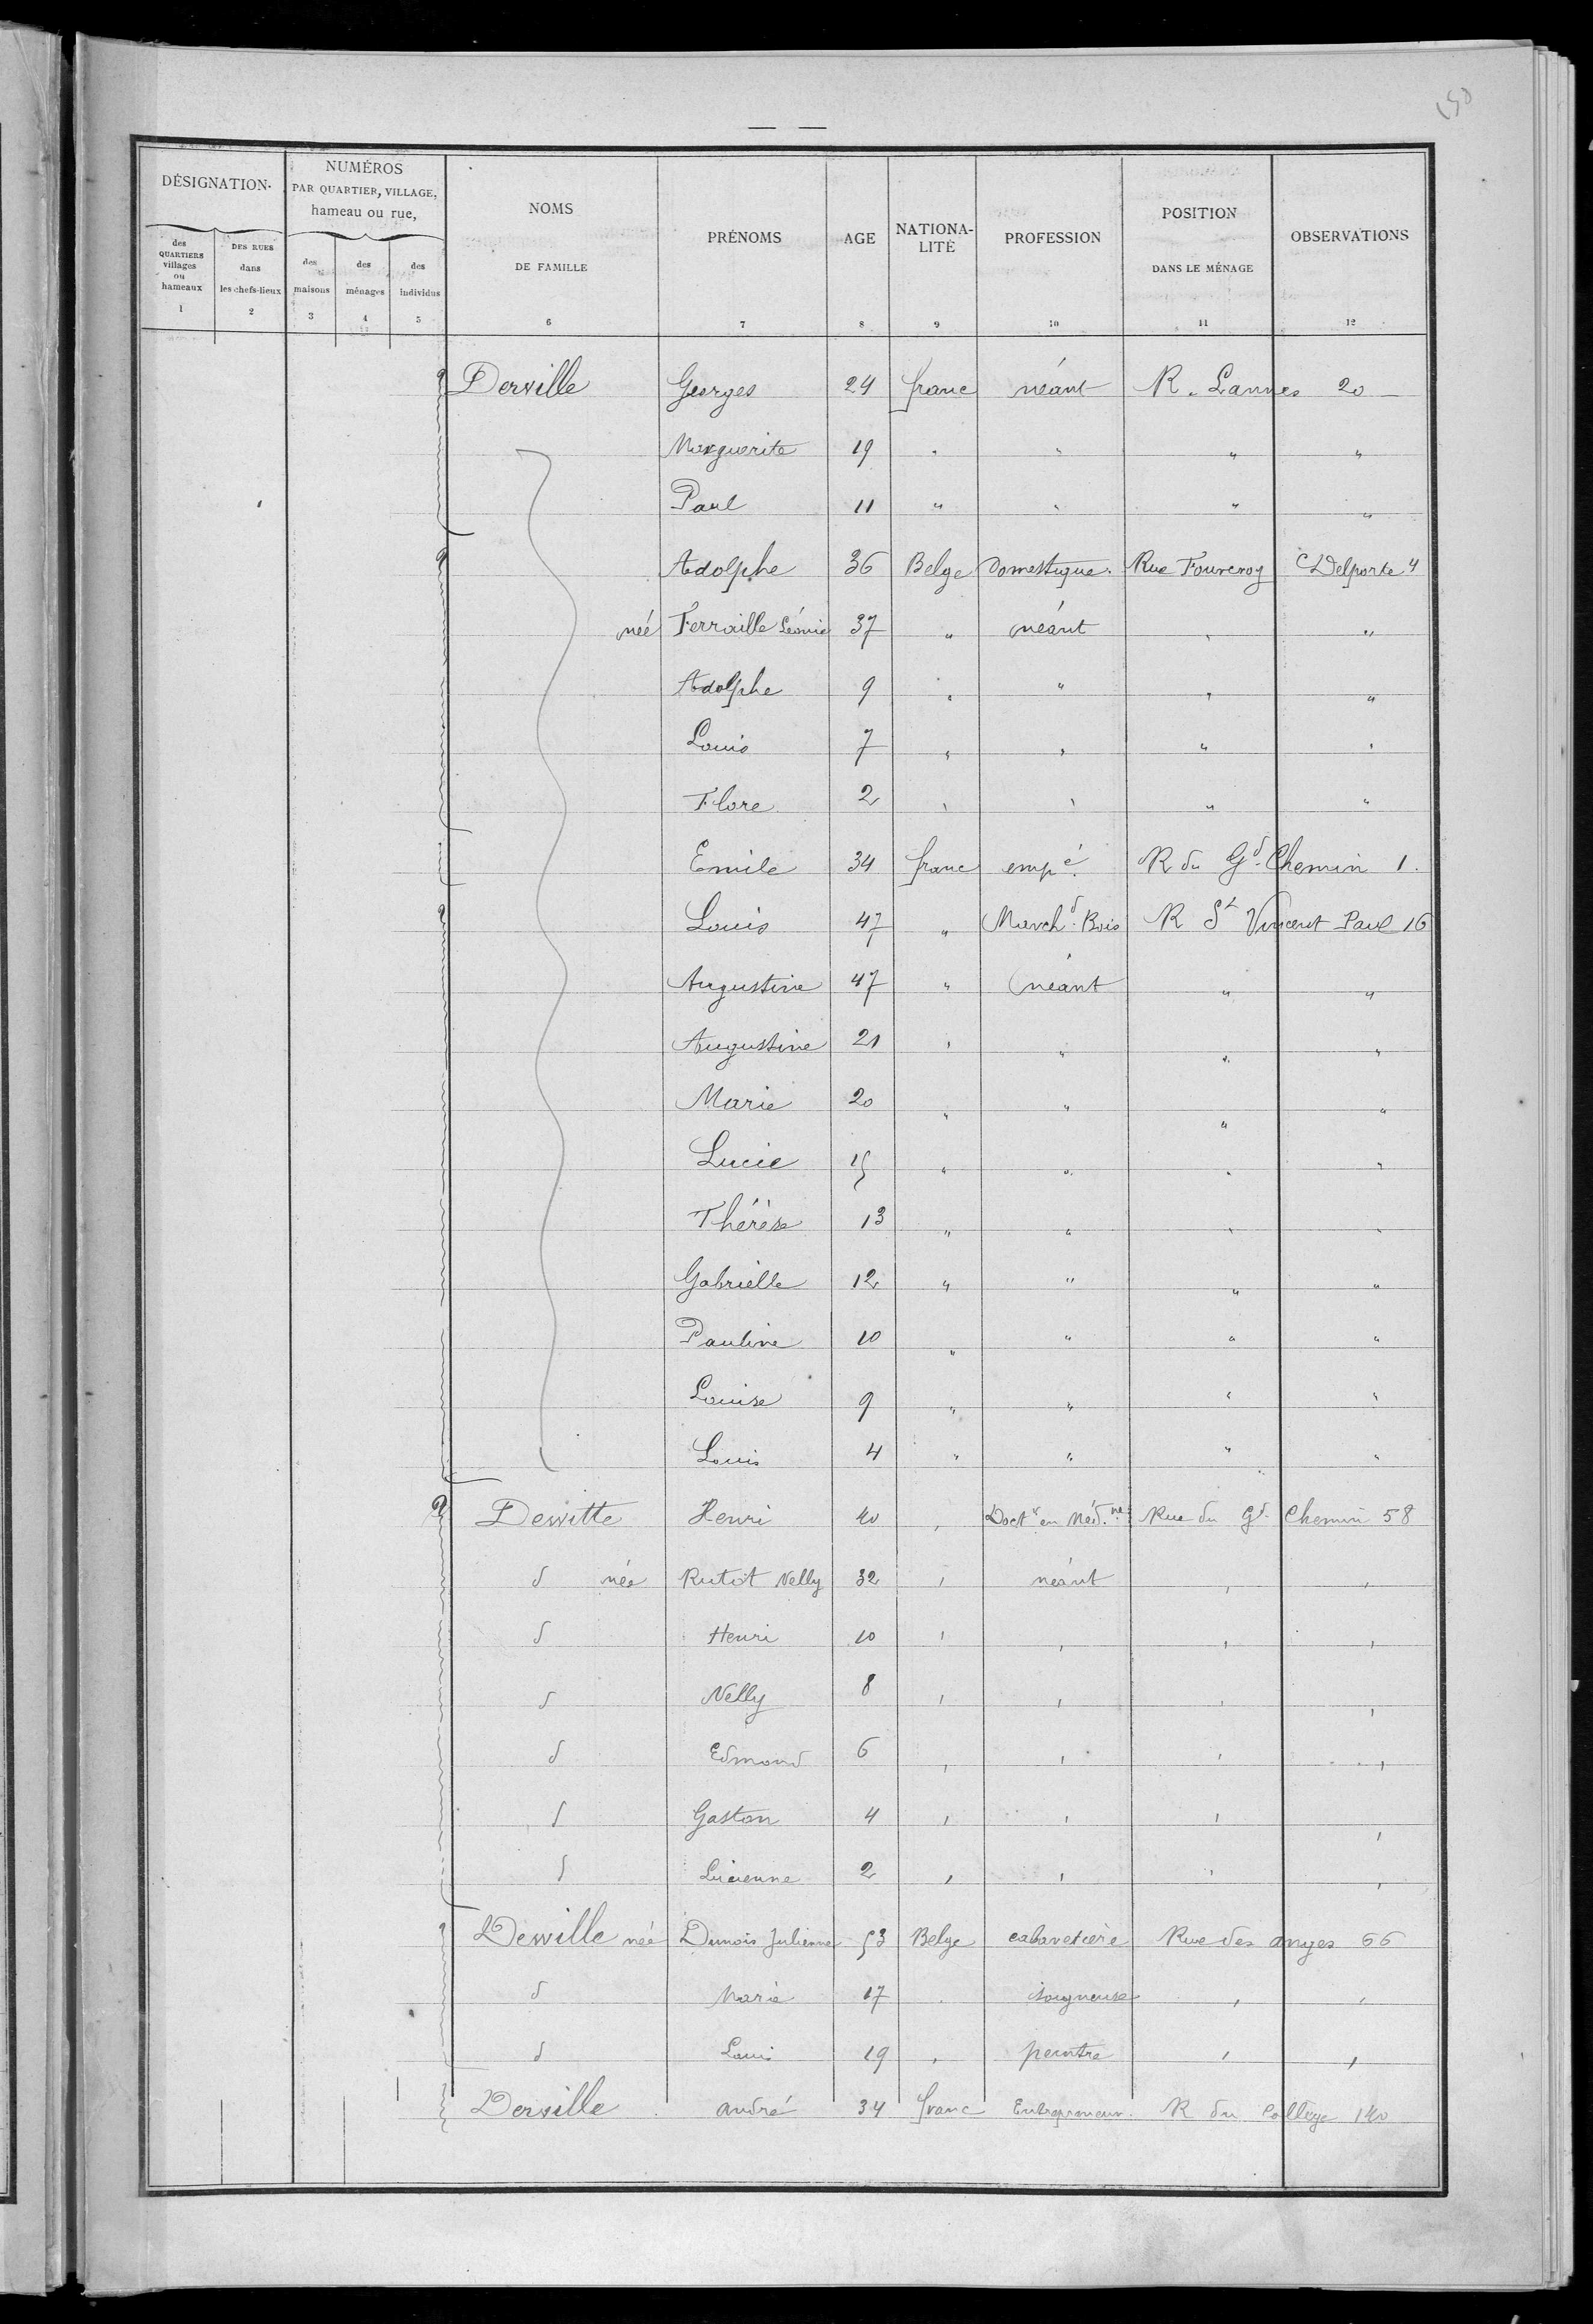 150
DÉSIGNATION NUMÉROS PAR QUARTIER, VILLAGE, hameau ou rue, NOMS DE FAMILLE PRÉNOMS AGE NATIONA-LITÉ PROFESSION POSITION DANS LE MÉNAGE OBSERVATIONS
des QUARTIERS villages ou hameaux DES RUES dans les chefs-lieux des maisons des ménages des individus
1 2 3 4 5 6 7 8 9 10 11 12
Derville Georges 24 franc néant R. Lannes 20
Marguerite 19 " " " "
Paul 11 " " " "
Adolphe 36 Belge domestique. Rue Fourcroy C Delporte 4
née Ferraille Léonie 37 " néant " "
Adolphe 9 " " " "
Louis 7 " " " "
Flore 2 " " " "
Emile 34 franc empé. R du Gd. Chemin 1.
Louis 47 " Marchd. Bois R St Vincent Paul 16
Augustine 47 " néant " "
Augustine 21 " " " "
Marie 20 " " " "
Lucie 15 " " " "
Thérèse 13 " " " "
Gabrielle 12 " " " "
Pauline 10 " " " "
Louise 9 " " " "
Louis 4 " " " "
Dewitte Henri 40 " Doctr en Méd.ne Rue du Gd. Chemin 58
d née Rutot Nelly 32 " néant " "
d Henri 10 " " " "
d Nelly 8 " " " "
d Edmond 6 " " " "
d Gaston 4 " " " "
d Lucienne 2 " " " "
Derville née Dunois Julienne 53 Belge cabaretière Rue des anges 66
d Marie 17 " soigneuse " "
d Louis 19 " peintre " "
Derville andré 34 franc Entrepreneur. R du Collège 140